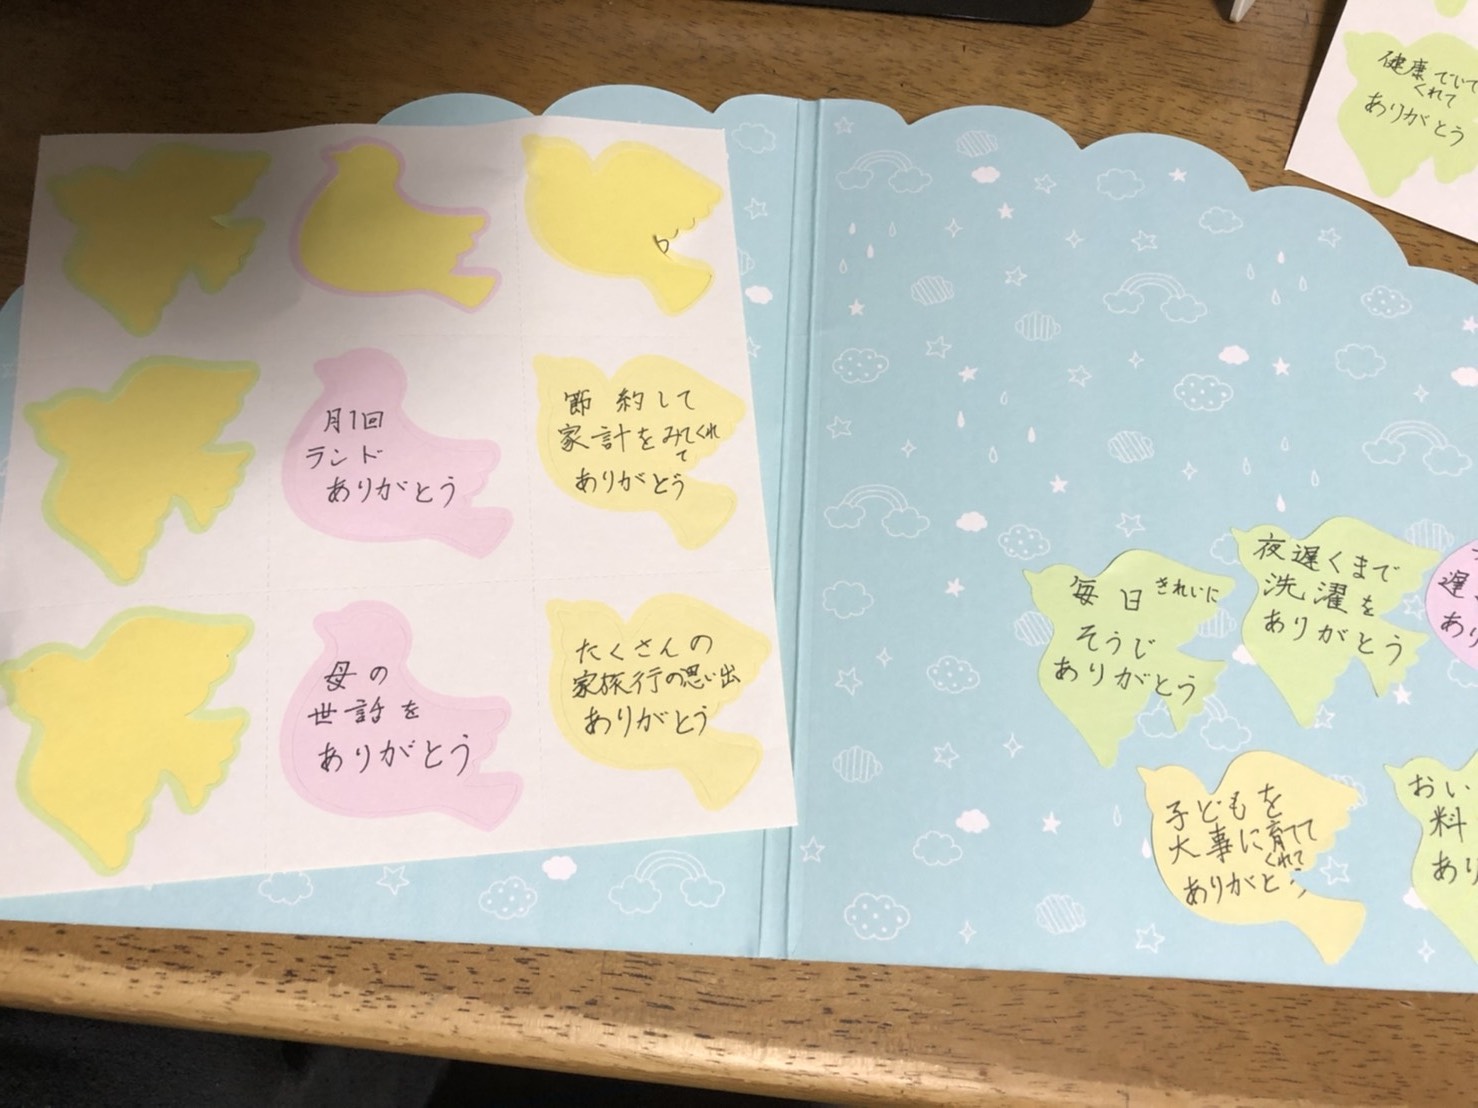 月1回
ランド
ありがとう
節約して
家計をみてくれ
て
ありがとう
母の
世話を
ありがとう
たくさんの
家旅行の思い出
ありがとう
健康でいて
くれて
ありがとう
毎日きれいに
そうじ
ありがとう
夜遅くまで
洗濯を
ありがとう
遅
あり
子どもを
大事に育てて
くれて
ありがとう
おい
料
あり